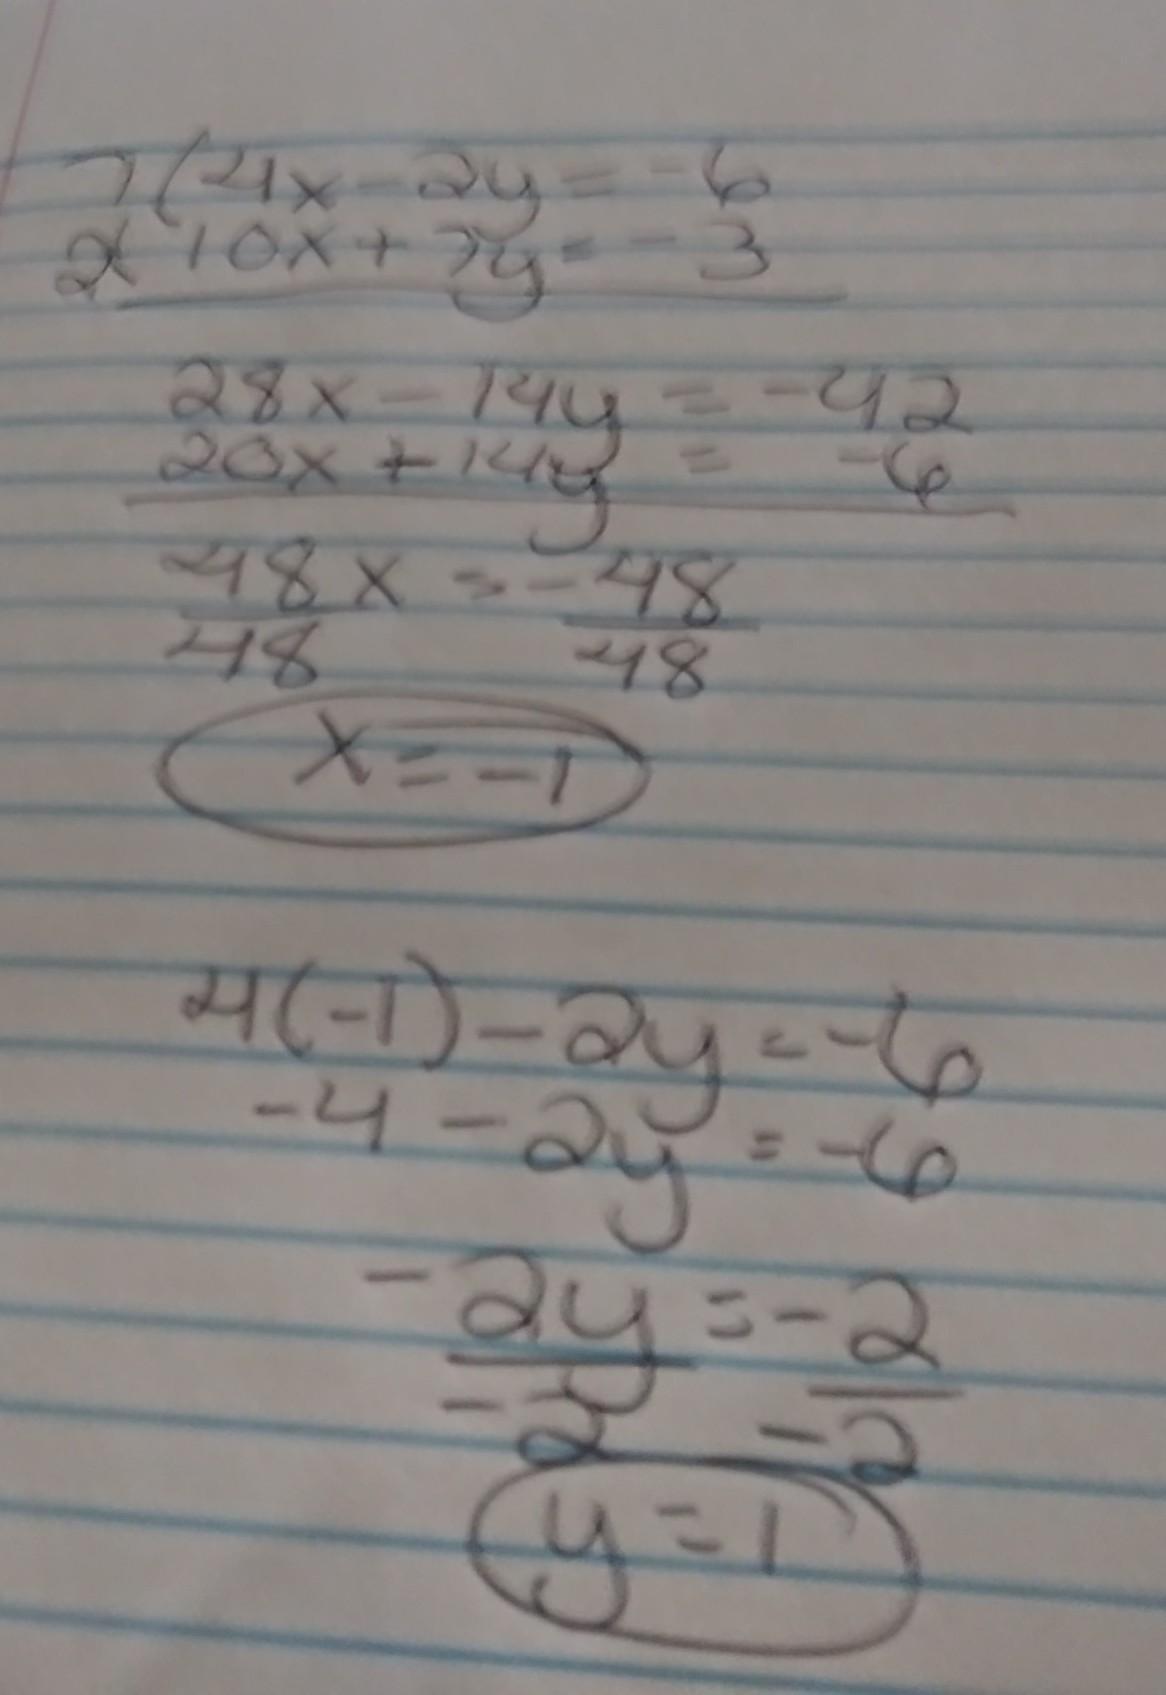 7(4x-2y=-6
2( 10x+7y=-3
28x-14y=-42
20x+14y= -6
48x=-48
48 48
x=-1
4(-1)-2y=-6
-4-2y=-6
-2y=-2
-2 -2
y=1